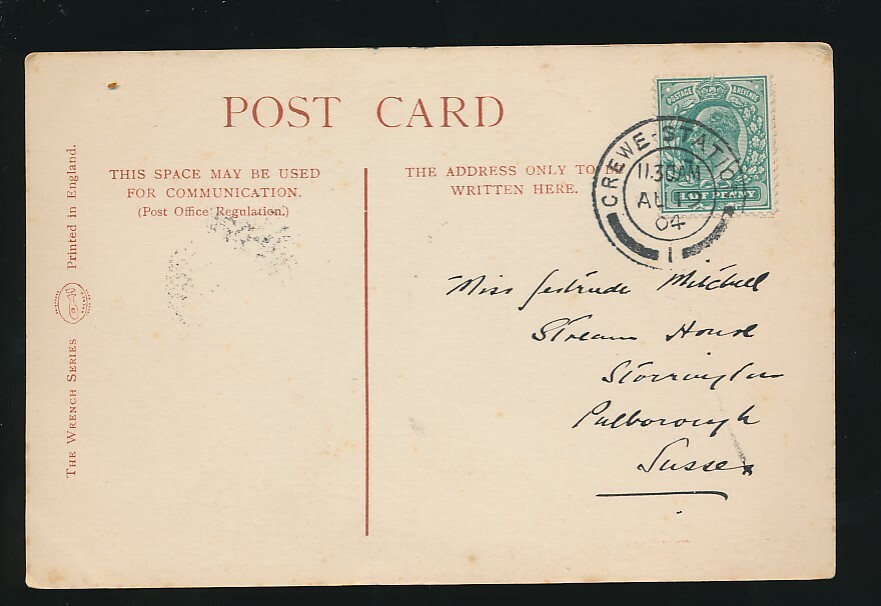 POST CARD
POSTAGE & REVENUE
HALF PENNY
CREWE-STATION
11.30AM
AU
04
1
THIS SPACE MAY BE USED
FOR COMMUNICATION.
(Post Office Regulation.)
THE ADDRESS ONLY TO BE
WRITTEN HERE.
Miss Gertrude Mitchell
Stream House
Storrington
Pulborough
Sussex
THE WRENCH SERIES
Printed in England.